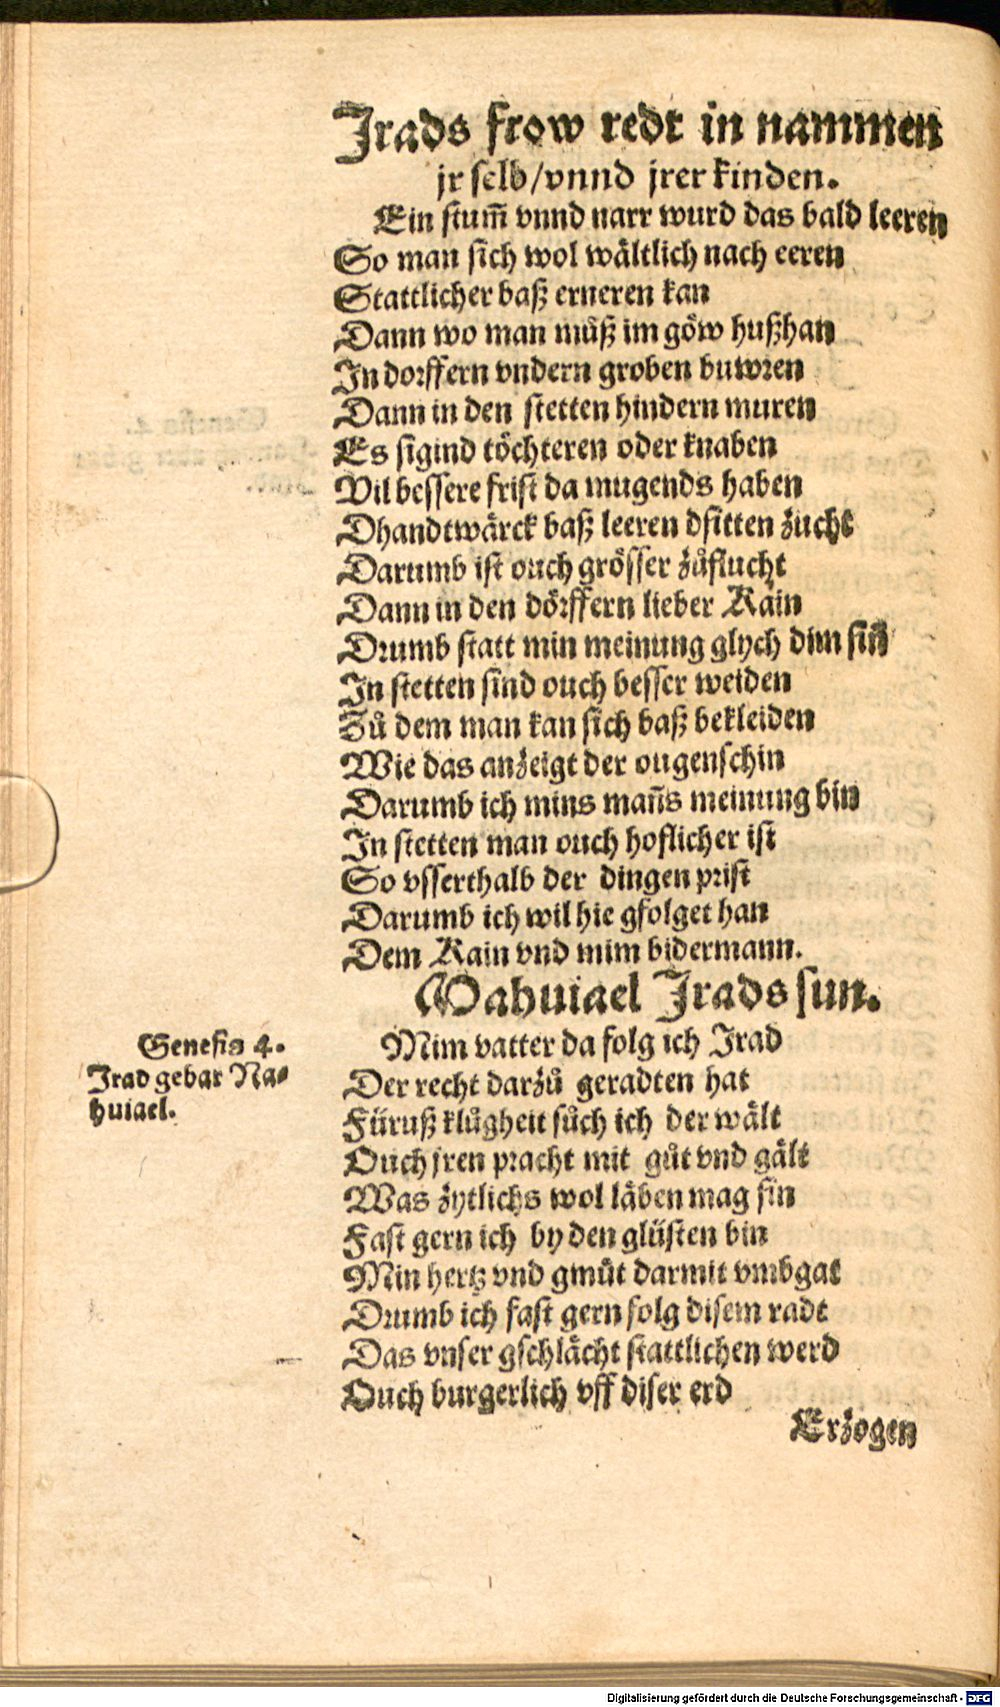 Irads frow redt in nammen
jr selb/vnnd jrer kinden.
Ein stum̃ vnnd narr wurd das bald leeren
So man sich wol wältlich nach eeren
Stattlicher baß erneren kan
Dann wo man můß im göw hußhan
In dorffern vndern groben buwren
Dann in den stetten hindern muren
Es sigind töchteren oder knaben
Vil bessere frist da mugends haben
Dhandtwärck baß leeren dsitten zucht
Darumb ist ouch grösser zůflucht
Dann in den dörffern lieber Kain
Drumb statt min meinung glych dim sin̄
In stetten sind ouch besser weiden
Zů dem man kan sich baß bekleiden
Wie das anzeigt der ougenschin
Darumb ich mins man̄s meinung bin
In stetten man ouch hoflicher ist
So vsserthalb der dingen prist
Darumb ich wil hie gfolget han
Dem Kain vnd mim bidermann.
Mahuiael Irads sun.
Genesis 4.
Irad gebar Ma-
huiael.
Mim vatter da folg ich Irad
Der recht darzů geradten hat
Füruß klůgheit sůch ich der wält
Ouch jren pracht mit gůt vnd gält
Was zytlichs wol läben mag sin
Fast gern ich by den glüsten bin
Min hertz vnd gmůt darmit vmbgat
Drumb ich fast gern folg disem radt
Das vnser gschlächt stattlichen werd
Ouch burgerlich vff diser erd
Erzogen
Digitalisierung gefördert durch die Deutsche Forschungsgemeinschaft - DFG